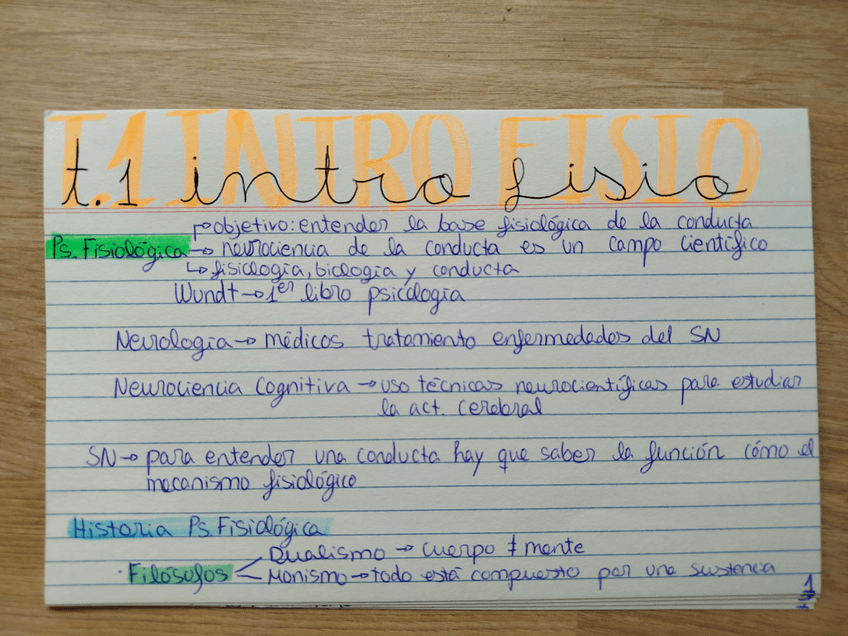 T.1 INTRO FISIO
t.1 intro fisio
objetivo: entender la base fisiológica de la conducta
Ps. Fisiológica → neurociencia de la conducta es un campo científico
↳ fisiología, biología y conducta
Wundt → 1er libro psicología
Neurología → médicos tratamiento enfermedades del SN
Neurociencia Cognitiva → uso técnicas neurocientíficas para estudiar
la act. cerebral
SN → para entender una conducta hay que saber la función cómo el
mecanismo fisiológico
Historia Ps. Fisiológica
Dualismo → cuerpo ≠ mente
· Filósofos
Monismo → todo está compuesto por una sustencia
1